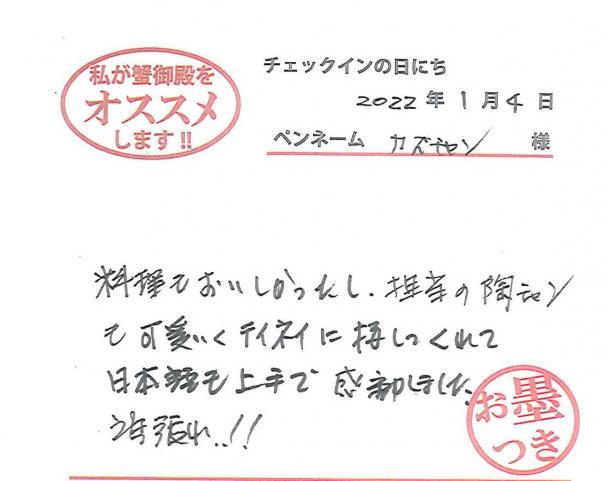 私が蟹御殿を
オススメ
します!!
チェックインの日にち
2022年1月4日
ペンネーム カズチャン 様
料理もおいしかったし、担当の陶チャン
も可愛いくテイネイに接しくれて
日本語も上手で感動しました。
頑張れ..!!
お墨
つき